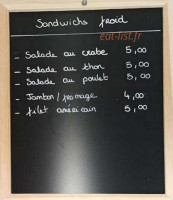 Sandwichs froid
eat-list.fr
- Salade au crabe 5,00
- Salade au thon 5,00
- Salade au poulet 5,00
- Jambon / fromage 4,00
- filet américain 5,00